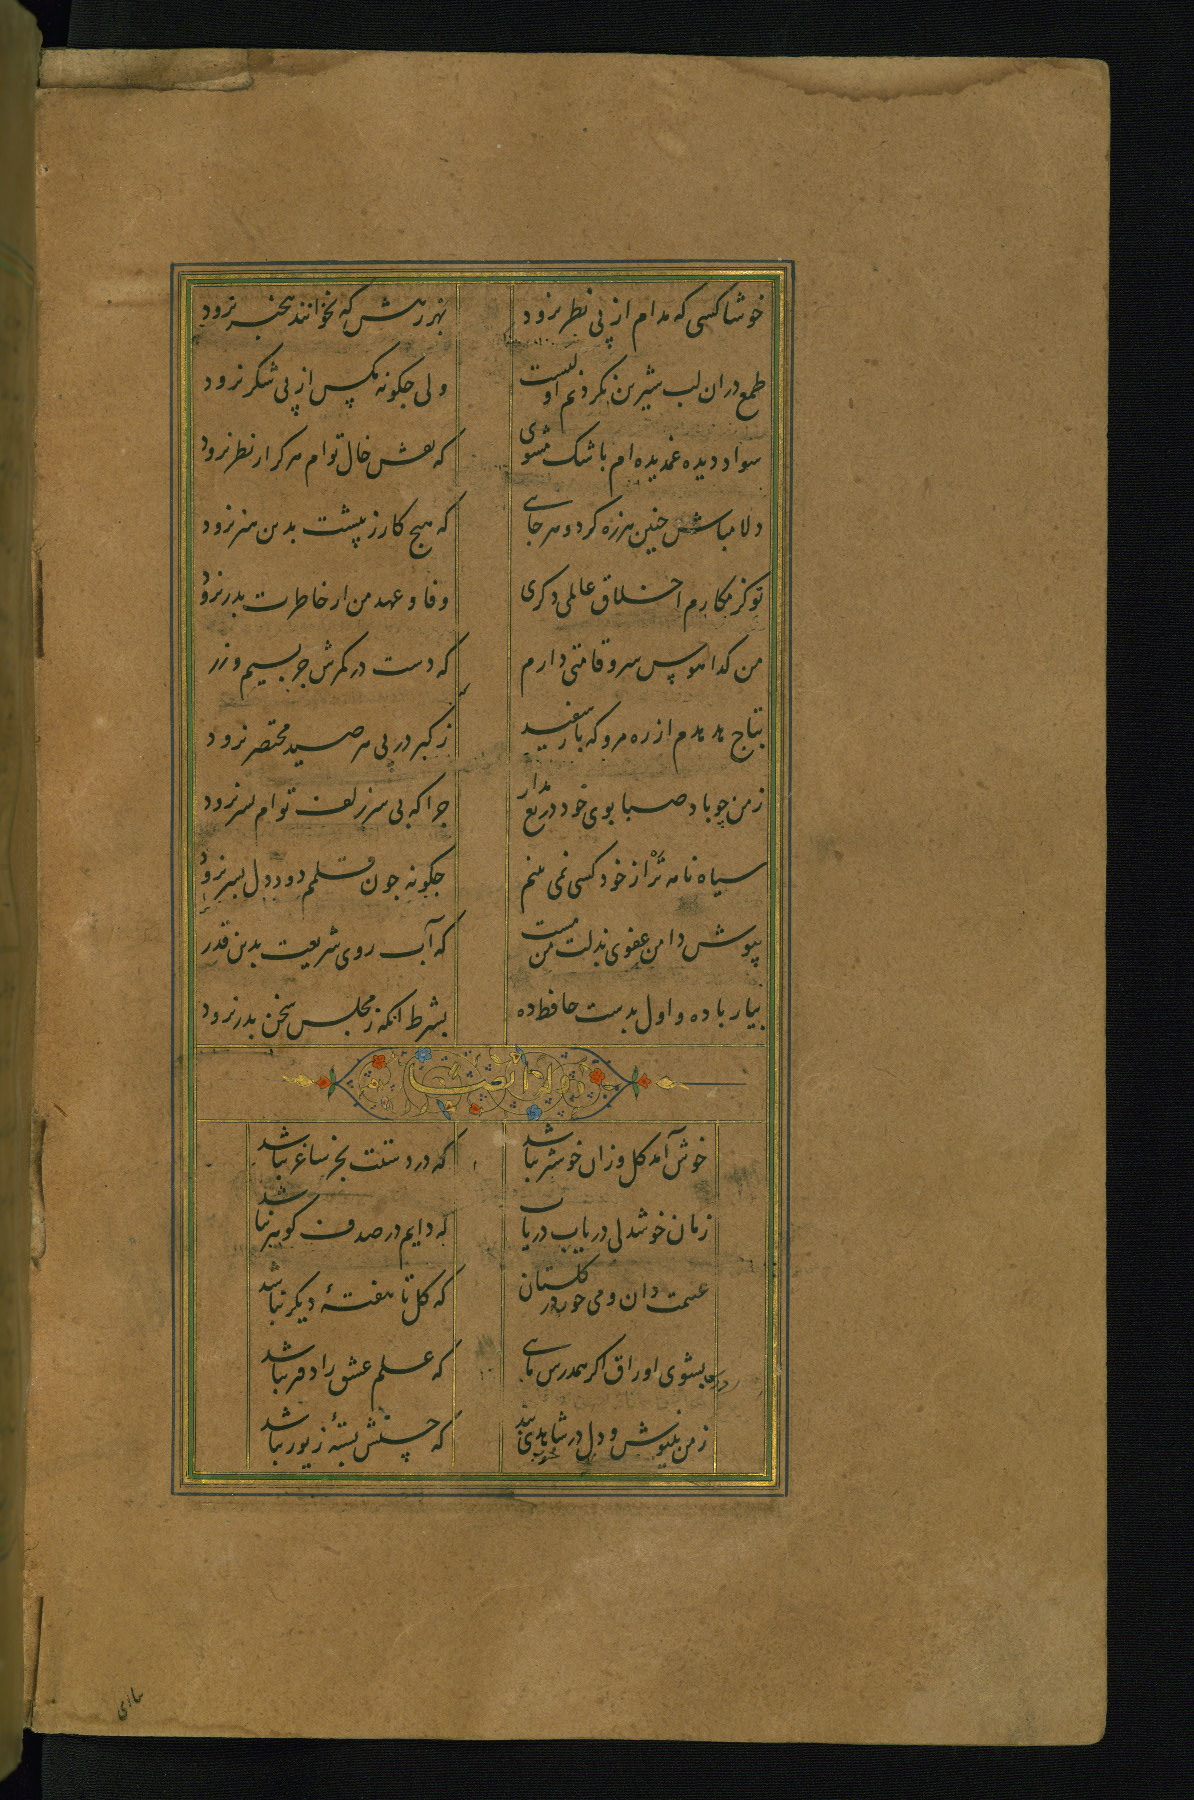 خوشا کسی که مدام از پی نظر نرود بهر رهش که بخوانند بیخبر نرود
طمع دران لب شیرین نکردنم اولیست ولی جکونه مکس از پی شکر نرود
سواد دیده غمدیده ام باشک مشوی که نقش خال توام هرکز از نظر نرود
دلا مباش جنین هرزه کرد و هرجایی که هیج کار ز پیشت بدین هنر نرود
تو کز مکارم اخلاق عالمی دکری وفا و عهد من از خاطرت بدر نرود
من کدا هوس سرو قامتی دارم که دست در کمرش جز بسیم و زر
بتاج هدهدم از ره مرو که باز سفید ز کبر در پی هر صید مختصر نرود
ز من چو باد صبا بوی خود دریغ مدار جرا که بی سر زلف توام بسر نرود
سیاه نامه تر از خود کسی نمی بینم جکونه جون قلمم دود دل بسر نرود
بپوش دامن عفوی بذلت من مست که آب روی شریعت بدین قدر
بیار باده و اول بدست حافظ ده بشرط انکه ز مجلس سخن بدر نرود
وله ایضا
خوش آمد کل وزان خوشتر نباشد که در دستت بجز ساغر نباشد
زمان خوشدلی دریاب دریاب که دایم در صدف کوهر نباشد
غنیمت دان و می خور در کلستان که کل تا هفتهٔ دیکر نباشد
بشوی اوراق اکر همدرس مایی که علم عشق را دفتر نباشد
ز من بنیوش و دل در شاهدی بند که حسنش بستهٔ زیور نباشد